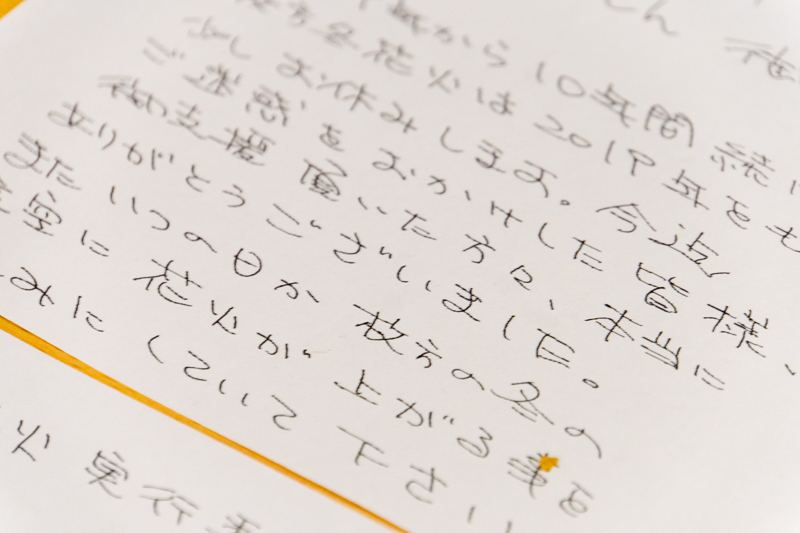 年間から10年間 続い
枚方冬花火は2019年をも
少しお休みします。今迄
ご迷惑をおかけした皆様、
御支援頂いた方々、本当に
ありがとうございました。
またいつの日か枚方の冬の
夜空に花火が上がる事を
みにしていて下さい
火 実行